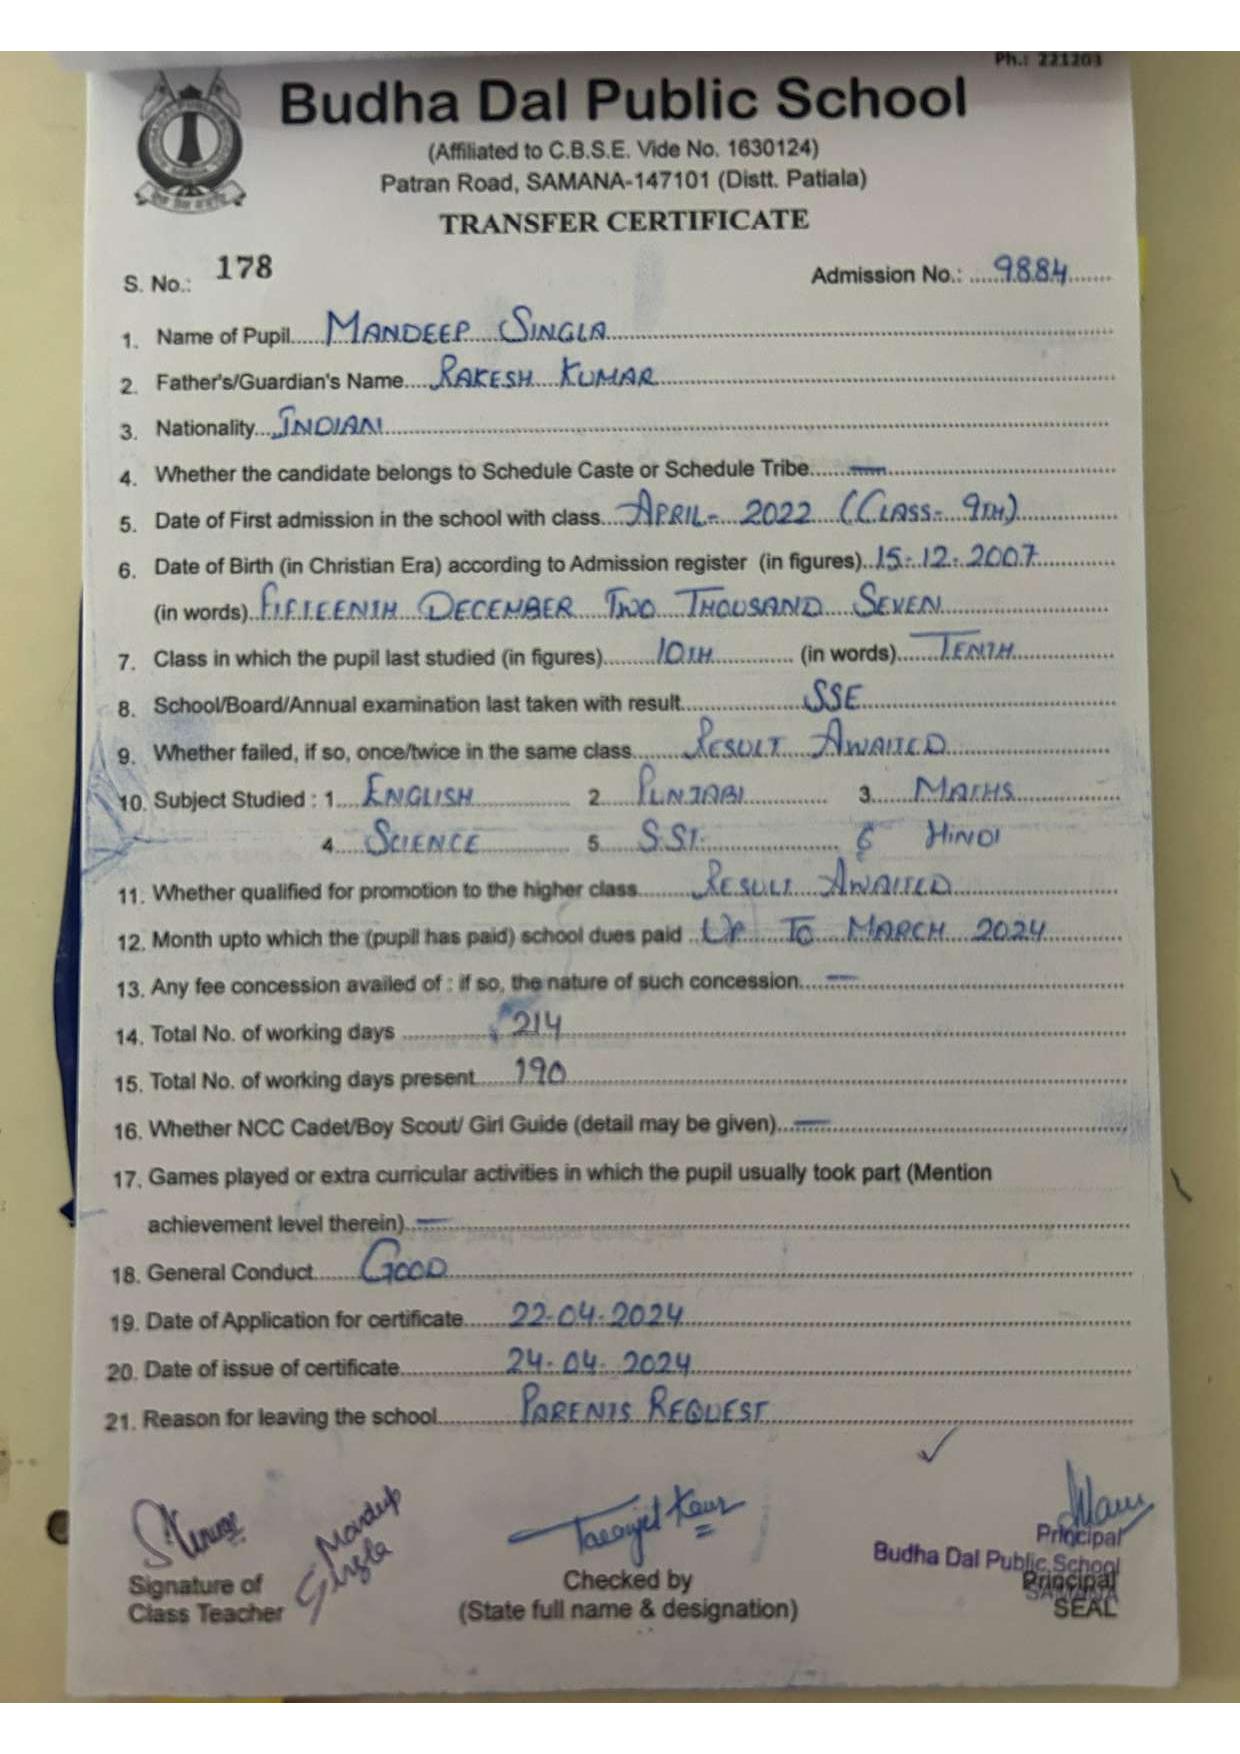 Ph.: 221203
Budha Dal Public School
(Affiliated to C.B.S.E. Vide No. 1630124)
Patran Road, SAMANA-147101 (Distt. Patiala)
TRANSFER CERTIFICATE
S. No.: 178 Admission No.: 9884
1. Name of Pupil MANDEEP SINGLA
2. Father's/Guardian's Name RAKESH KUMAR
3. Nationality INDIAN
4. Whether the candidate belongs to Schedule Caste or Schedule Tribe —
5. Date of First admission in the school with class APRIL- 2022 (CLASS- 9TH)
6. Date of Birth (in Christian Era) according to Admission register (in figures) 15-12-2007
(in words) FIFTEENTH DECEMBER TWO THOUSAND SEVEN
7. Class in which the pupil last studied (in figures) 10TH (in words) TENTH
8. School/Board/Annual examination last taken with result SSE
9. Whether failed, if so, once/twice in the same class RESULT AWAITED
10. Subject Studied : 1. ENGLISH 2. PUNJABI 3. MATHS
4. SCIENCE 5. S.ST. & HINDI
11. Whether qualified for promotion to the higher class RESULT AWAITED
12. Month upto which the (pupil has paid) school dues paid UP TO MARCH 2024
13. Any fee concession availed of : if so, the nature of such concession —
14. Total No. of working days 214
15. Total No. of working days present 190
16. Whether NCC Cadet/Boy Scout/ Girl Guide (detail may be given) —
17. Games played or extra curricular activities in which the pupil usually took part (Mention
achievement level therein) —
18. General Conduct GOOD
19. Date of Application for certificate 22-04-2024
20. Date of issue of certificate 24-04-2024
21. Reason for leaving the school PARENTS REQUEST
Mandeep
Singla
Kaur
Signature of
Class Teacher
Checked by
(State full name & designation)
Principal
Budha Dal Public School
SAMANA
Principal
SEAL